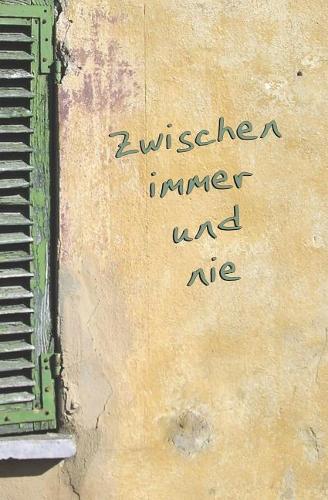 Zwischen
immer
und
nie